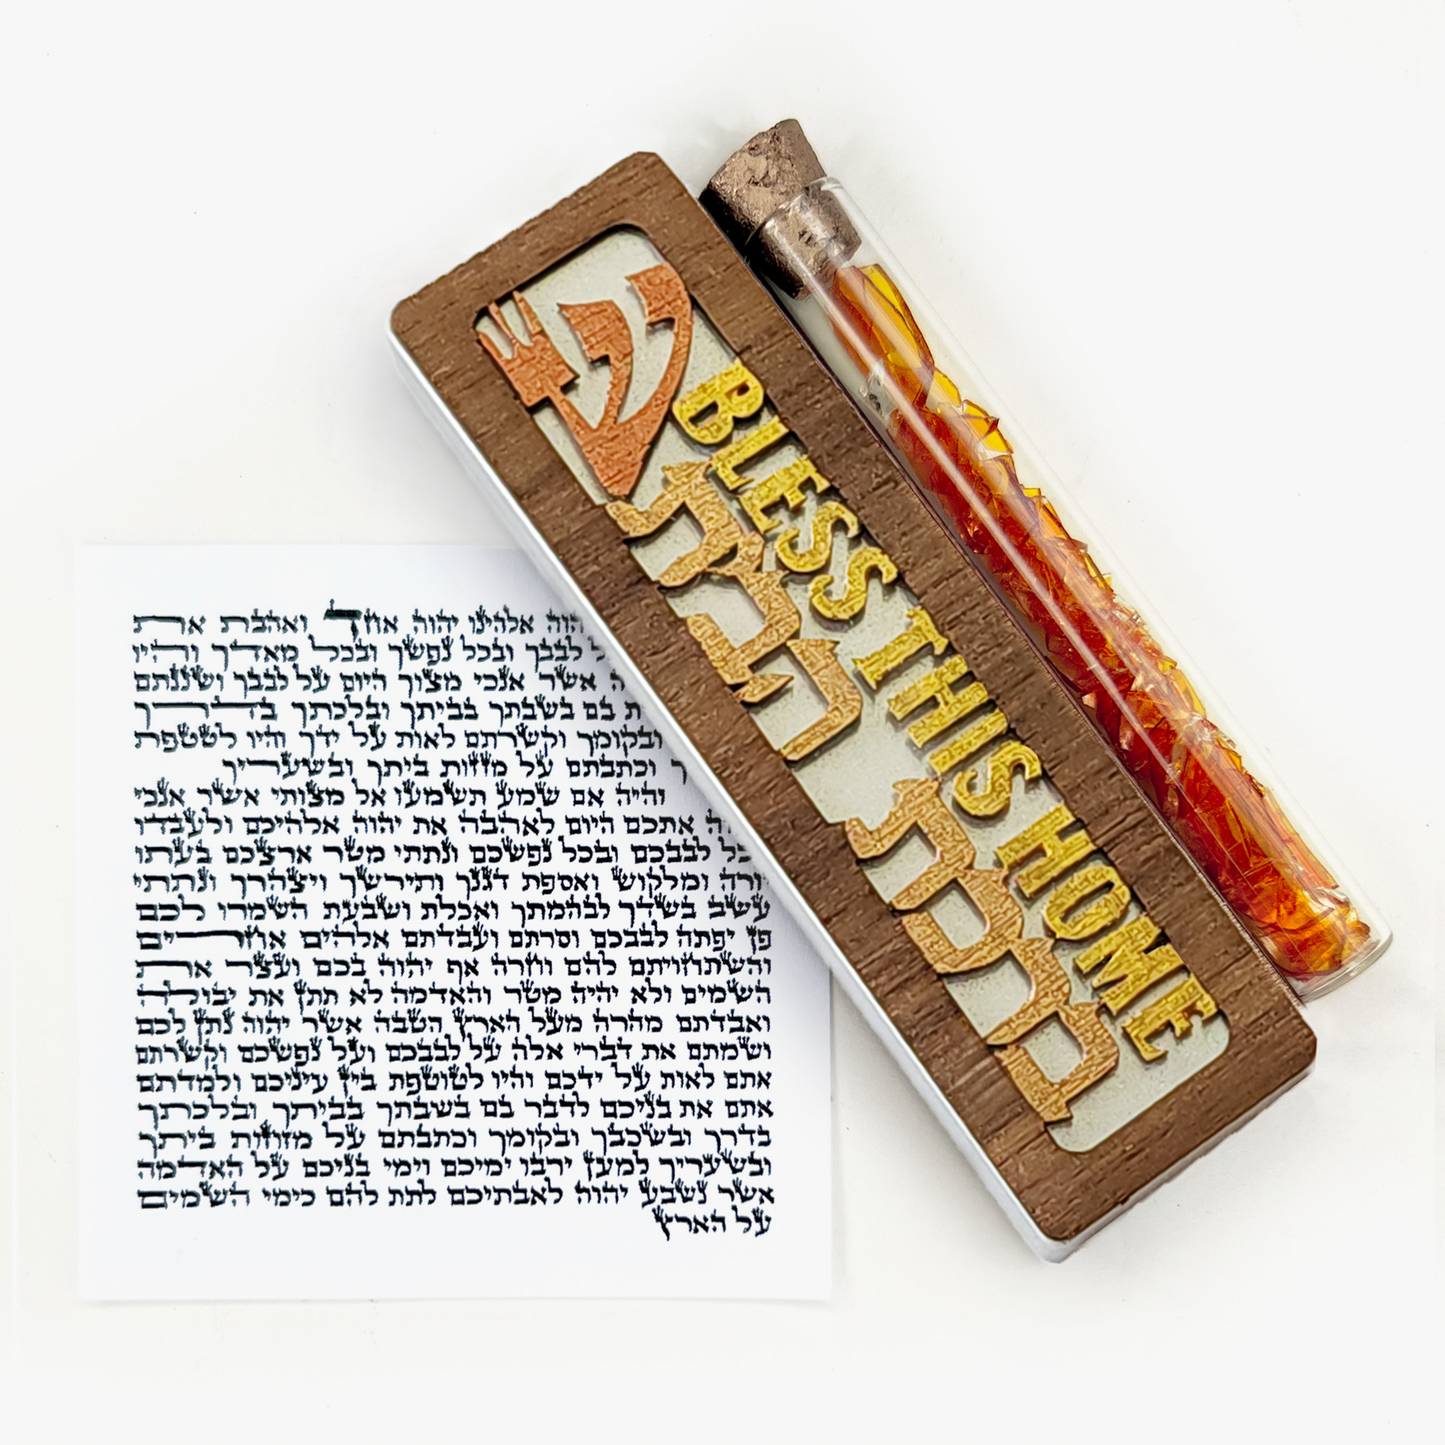 ש
BLESS THIS HOME
ברכת הבית
אלהינו יהוה אחד ואהבת את
לבבך ובכל נפשך ובכל מאדך והיו
אשר אנכי מצוך היום על לבבך ושננתם
בם בשבתך בביתך ובלכתך בדרך
ובקומך וקשרתם לאות על ידך והיו לטטפת
וכתבתם על מזזות ביתך ובשעריך
והיה אם שמע תשמעו אל מצותי אשר אנכי
אתכם היום לאהבה את יהוה אלהיכם ולעבדו
לבבכם ובכל נפשכם ונתתי מטר ארצכם בעתו
ומלקוש ואספת דגנך ותירשך ויצהרך ונתתי
עשב בשדך לבהמתך ואכלת ושבעת השמרו לכם
פן יפתה לבבכם וסרתם ועבדתם אלהים אחרים
והשתחויתם להם וחרה אף יהוה בכם ועצר את
השמים ולא יהיה מטר והאדמה לא תתן את יבולה
ואבדתם מהרה מעל הארץ הטבה אשר יהוה נתן לכם
ושמתם את דברי אלה על לבבכם ועל נפשכם וקשרתם
אתם לאות על ידכם והיו לטוטפת בין עיניכם ולמדתם
אתם את בניכם לדבר בם בשבתך בביתך ובלכתך
בדרך ובשכבך ובקומך וכתבתם על מזוזות ביתך
ובשעריך למען ירבו ימיכם וימי בניכם על האדמה
אשר נשבע יהוה לאבתיכם לתת להם כימי השמים
על הארץ